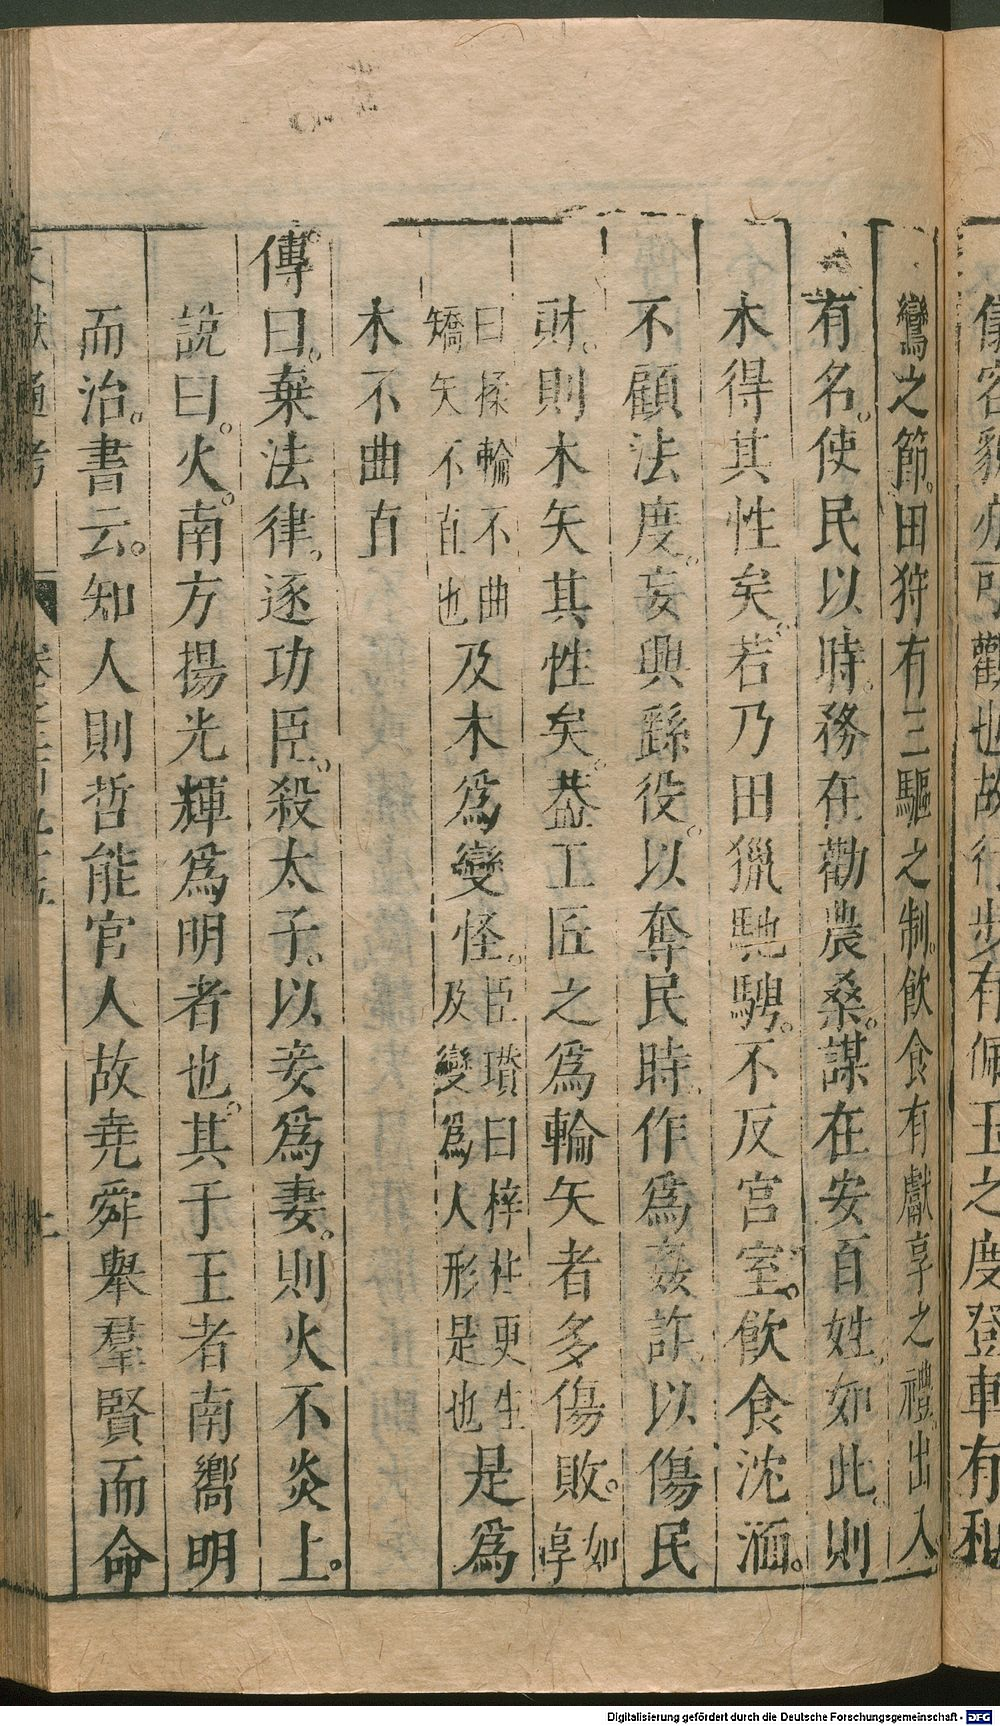 儀容貌亦可觀也故行步有佩玉之度登車有和
鸞之節。田狩有三驅之制。飲食有獻享之禮。出入
有名。使民以時。務在勸農桑。謀在安百姓。如此。則
木得其性矣。若乃田獵馳騁。不反宮室。飲食沈湎。
不顧法度。妄興繇役。以奪民時。作爲姦詐。以傷民
財。則木失其性矣。葢工匠之爲輪矢者多傷敗。如淳
曰揉輪不曲矯矢不直也及木爲變怪。臣瓚曰梓柱更生及變爲人形是也是爲
木不曲直
傳曰。棄法律。逐功臣。殺太子。以妾爲妻。則火不炎上。
說曰。火。南方揚光輝爲明者也。其于王者南嚮明
而治。書云。知人則哲能官人故堯舜舉羣賢而命
文獻通考
Digitalisierung gefördert durch die Deutsche Forschungsgemeinschaft - DFG